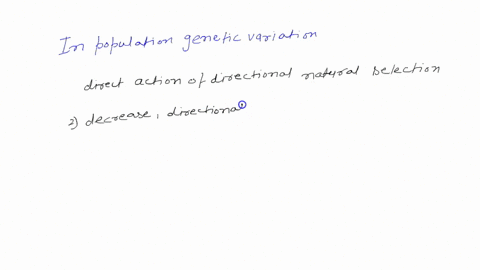 In population genetic variation
direct action of directional natural selection
2) decrease, directiona